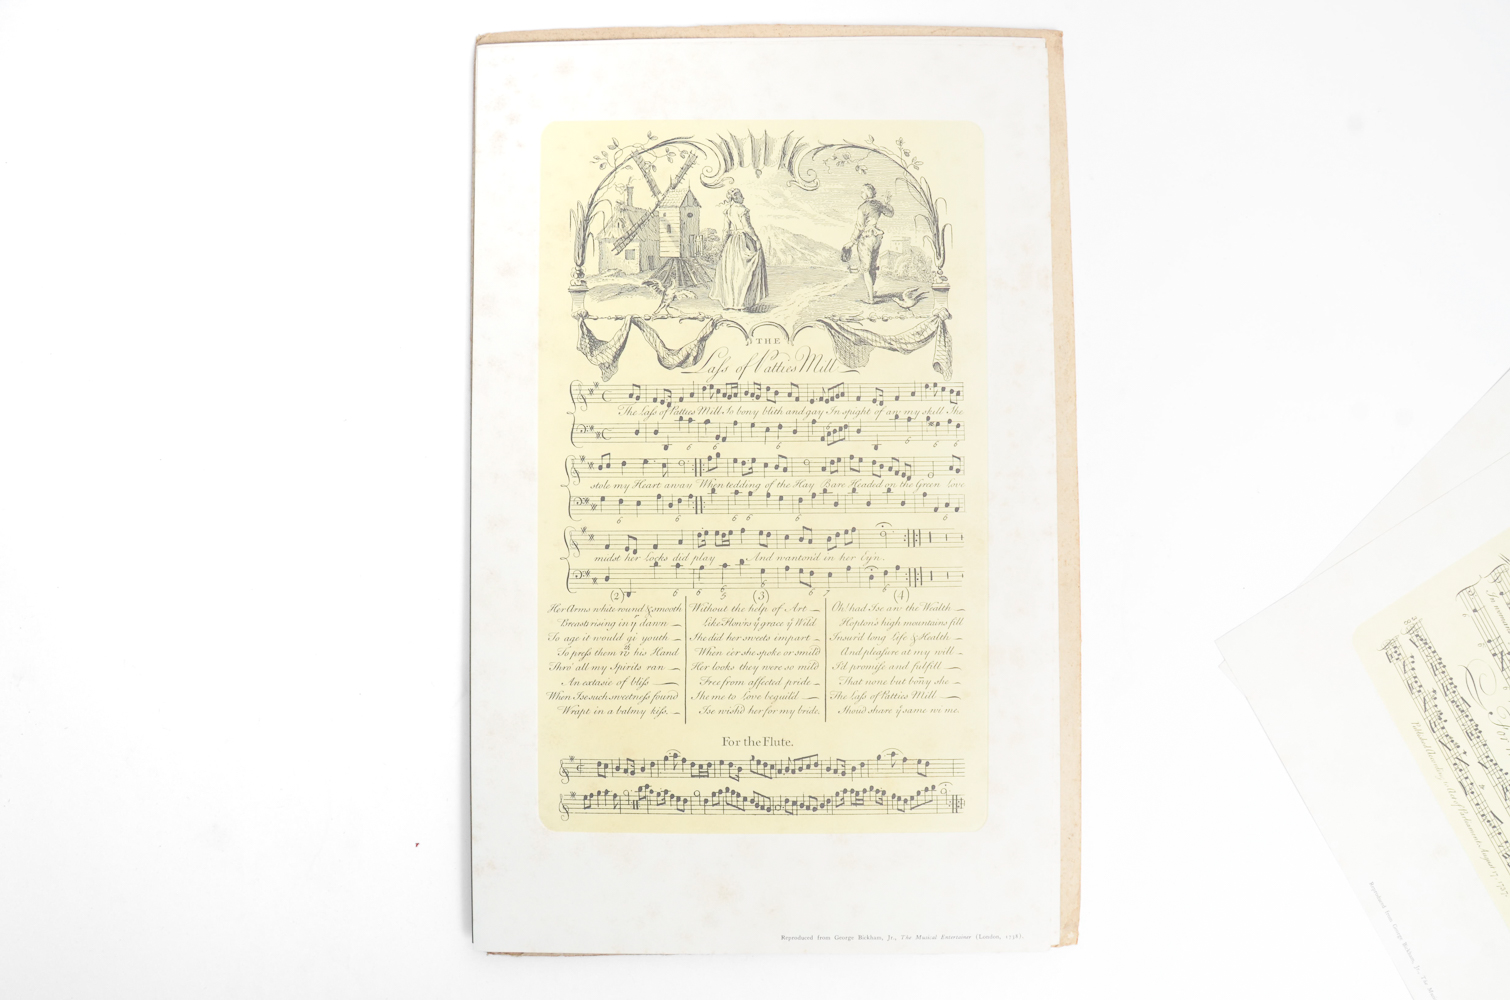 THE
Lass of Patties Mill
The Lass of Patties Mill So bony blith and gay In spight of aw my skill She
6 6 6 6 6 6
stole my Heart away When tedding of the Hay Bare Headed on the Green Love
6 6 6 6 6 6
midst her Locks did play And wanton'd in her Eyn
(2)
Her Arms white round & smooth
Breasts rising in ye dawn
To age it would gi youth
To press them wth his Hand
Thro' all my Spirits ran
An extasie of bliss
When I se such sweetness found
Wrapt in a balmy kiss.
(3)
Without the help of Art
Like Flow'rs yt grace ye Wild
She did her sweets impart
When e'er she spoke or smil'd
Her looks they were so mild
Free from affected pride
She me to Love beguil'd
I se wish'd her for my bride.
(4)
Oh! had I se aw the Wealth
Hopton's high mountains fill
Insur'd long Life & Health
And pleasure at my will
I'd promise and fulfill
That none but bony she
The Lass of Patties Mill
Shou'd share ye same wi me.
For the Flute.
Reproduced from George Bickham, Jr., The Musical Entertainer (London, 1738).
Reproduced from George Bickham, Jr., The